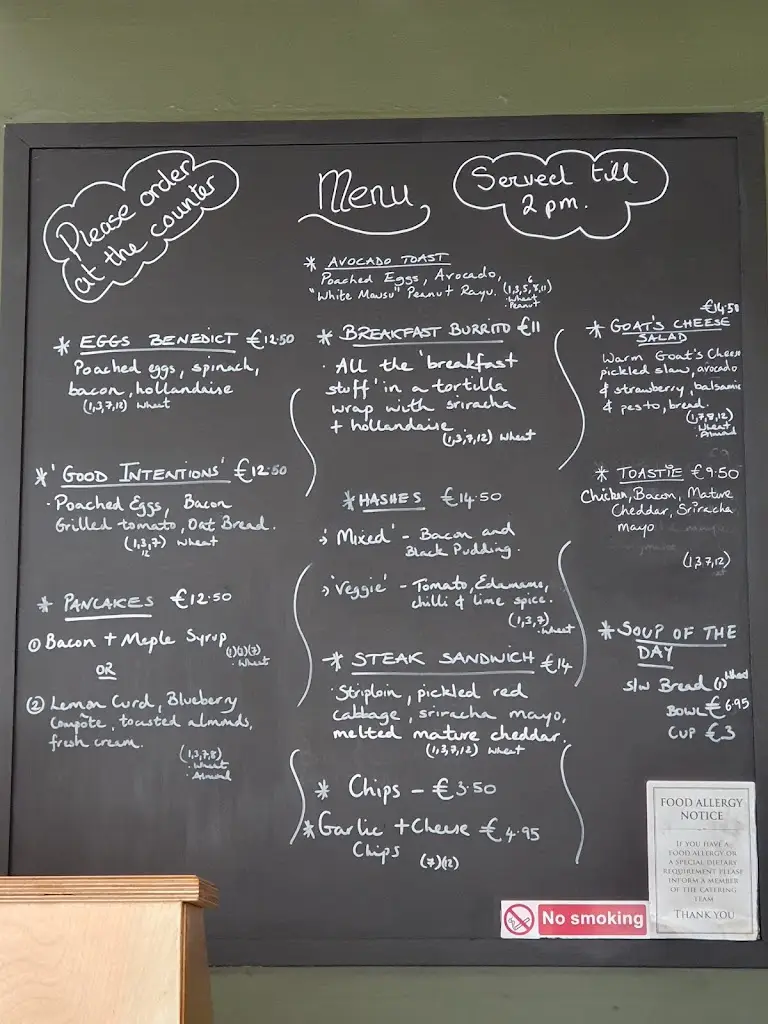 Please order
at the counter
Menu
Served till
2pm.
* AVOCADO TOAST
Poached Eggs, Avocado,
"White Mausu" Peanut Rayu.
6
(1,3,5,8,11)
· Wheat
Peanut
* EGGS BENEDICT €12.50
Poached eggs, spinach,
bacon, hollandaise
(1,3,7,12) Wheat
* 'GOOD INTENTIONS' €12.50
· Poached Eggs, Bacon
Grilled tomato, Oat Bread.
(1,3,7) Wheat
12
* PANCAKES €12.50
① Bacon + Maple Syrup
(1)(3)(7)
· Wheat
OR
② Lemon Curd, Blueberry
Compôte, toasted almonds,
fresh cream.
(1,3,7,8)
· Wheat
· Almond
* BREAKFAST BURRITO €11
· All the 'breakfast
stuff' in a tortilla
wrap with sriracha
+ hollandaise
(1,3,7,12) Wheat
* HASHES €14.50
'Mixed' - Bacon and
Black Pudding.
'Veggie' - Tomato, Edamame,
chilli & lime spice.
(1,3,7)
· Wheat
* STEAK SANDWICH €14
· Striploin, pickled red
cabbage, sriracha mayo,
melted mature cheddar.
(1,3,7,12) Wheat
* Chips - €3.50
* Garlic + Cheese €4.95
Chips
(7)(12)
€14.50
* GOAT'S CHEESE
SALAD
Warm Goat's Cheese
pickled slaw, avocado
& strawberry, balsamic
& pesto, bread.
(1,7,8,12)
· Wheat
· Almond
* TOASTIE €9.50
Chicken, Bacon, Mature
Cheddar, Sriracha
mayo
(1,3,7,12)
* SOUP OF THE
DAY
S/w Bread (1) Wheat
BOWL € 6.95
CUP €3
FOOD ALLERGY
NOTICE
IF YOU HAVE A
FOOD ALLERGY OR
A SPECIAL DIETARY
REQUIREMENT PLEASE
INFORM A MEMBER
OF THE CATERING
TEAM
THANK YOU
No smoking